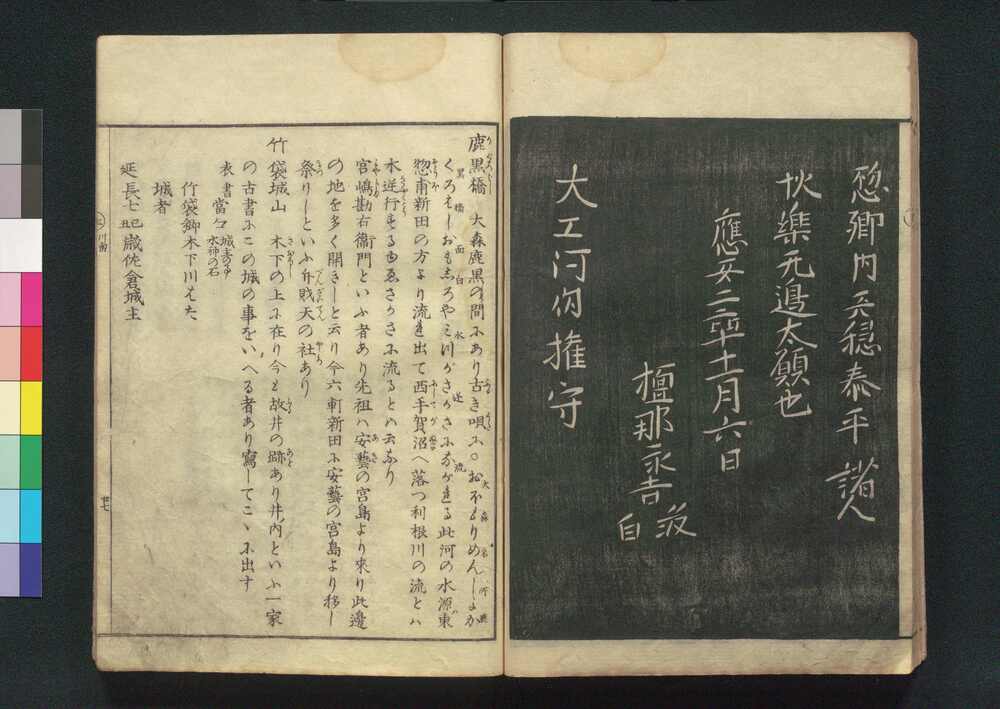 惣郷内天穏泰平諸人
快樂元邉太願也
應安二二年十二月六日
檀那永吉
敬
白
大工河内権守
鹿黒橋　大森鹿黒の間にあり古き唄に○おほもりめんしよか
くろはしおもしろやミ川がさかさにながれる此河の水源東
惣甫新田の方より流れ出て西手賀沼へ落つ利根川の流とハ
水逆行するゆゑさかさに流るとハ云なり
宮嶋勘右衞門といふ者あり先祖ハ安藝の宮島より來り此邊
の地を多く開きしと云り今六軒新田に安藝の宮島より移し
祭りしといふ弁戝天の社あり
竹袋城山　木下の上に在り今も故井の跡あり井内といふ一家
の古書にこの城の事をいへる者あり寫してこゝに出す
表書當
城主の
水神の石
竹袋郷木下川
城者
延長七
歳佐倉城主
廿七